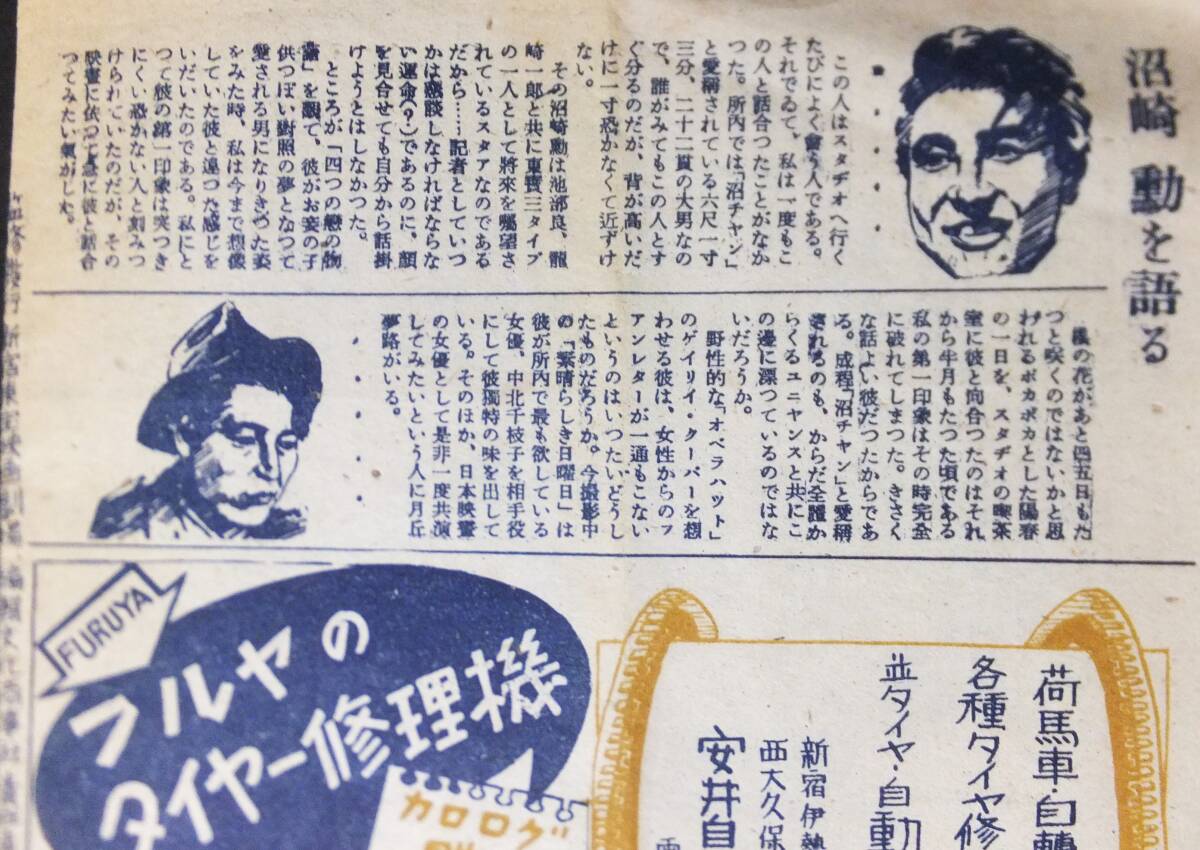 沼崎 動を語る
この人はスタヂオへ行く
たびによく會う人である。
それでゐて、私は一度もこ
の人と話合つたことがなか
つた。所内では「沼チヤン」
と愛稱されている六尺一寸
三分、二十二貫の大男なの
で、誰がみてもこの人とす
ぐ分るのだが、背が高いだ
けに一寸恐かなくて近ずけ
ない。
その沼崎勲は池部良、龍
崎一郎と共に東寶三タイプ
の一人として將來を囑望さ
れているスタアなのである
だから……記者としていつ
かは懇談しなければならな
い運命(?)であるのに、顔
を見合せても自分から話掛
けようとはしなかつた。
ところが「四つの戀の物
語」を觀て、彼がお妾の子
供つぽい對照の夢となつて
愛される男になりきつた姿
をみた時、私は今まで想像
していた彼と違つた感じを
いだいたのである。私にと
つて彼の第一印象は突つき
にくい恐かない人と刻みつ
けられていたのだが、その
映畫に依つて急に彼と話合
つてみたい氣がした。
櫻の花があと四五日もた
つと咲くのではないかと思
われるポカポカとした陽春
の一日を、スタヂオの喫茶
室に彼と向合つたのはそれ
から半月もたつた頃である
私の第一印象はその時完全
に破れてしまつた。きさく
な話よい彼だつたからであ
る。成程「沼チヤン」と愛稱
されるのも、からだ全體か
らくるユニヤンスと共にこ
の邊に漂つているのではな
いだろうか。
野性的な「オペラハット」
のゲイリイ・クーパーを想
わせる彼は、女性からのフ
アンレターが一通もこない
というのはいつたいどうし
たものだろうか。今撮影中
の「素晴らしき日曜日」は
彼が所内で最も欲している
女優、中北千枝子を相手役
にして彼獨特の味を出して
いる。そのほか、日本映畫
の女優として是非一度共演
してみたいという人に月丘
夢路がいる。
FURUYA
フルヤの
タイヤー修理機
カロログ
荷馬車・自轉
各種タイヤ修
並タイヤ・自動
新宿伊勢
西大久保
安井自